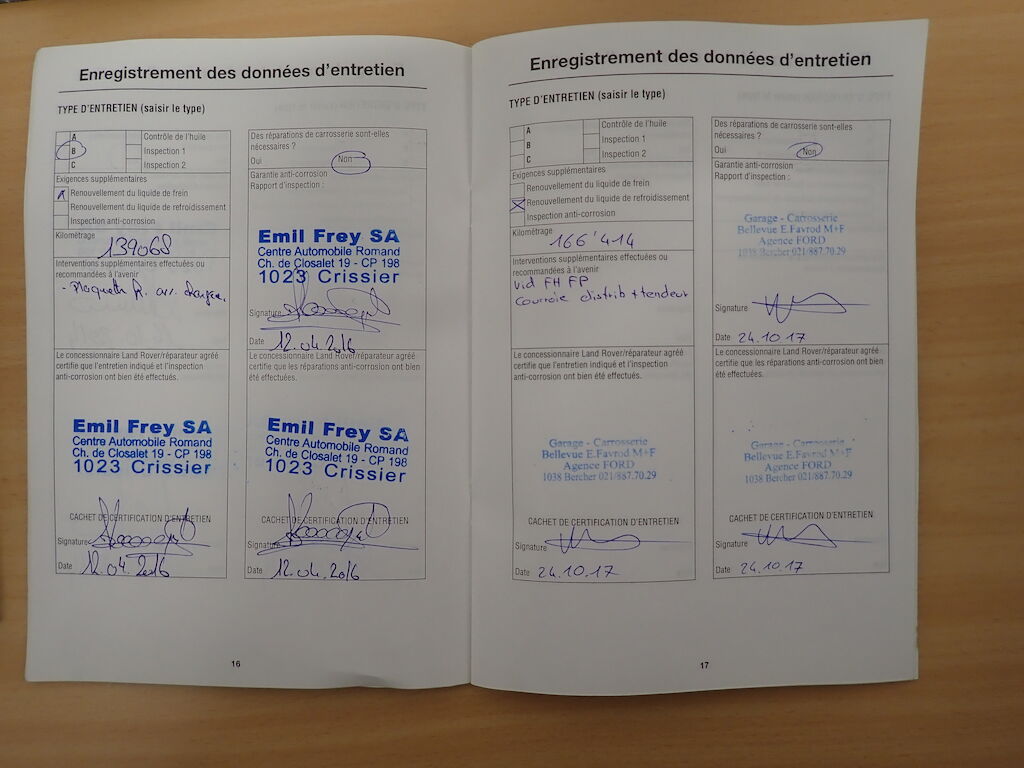 Enregistrement des données d'entretien
TYPE D'ENTRETIEN (saisir le type)
A
B
C
Contrôle de l'huile
Inspection 1
Inspection 2
Exigences supplémentaires
Renouvellement du liquide de frein
Renouvellement du liquide de refroidissement
Inspection anti-corrosion
Kilométrage
139068
Interventions supplémentaires effectuées ou
recommandées à l'avenir
- Plaquette R. arr.
Le concessionnaire Land Rover/réparateur agréé
certifie que l'entretien indiqué et l'inspection
anti-corrosion ont bien été effectués.
Emil Frey SA
Centre Automobile Romand
Ch. de Closalet 19 - CP 198
1023 Crissier
CACHET DE CERTIFICATION D'ENTRETIEN
Signature
Date 12.04.2016
Des réparations de carrosserie sont-elles
nécessaires ?
Oui Non
Garantie anti-corrosion
Rapport d'inspection :
Emil Frey SA
Centre Automobile Romand
Ch. de Closalet 19 - CP 198
1023 Crissier
Signature
Date 12.04.2016
Le concessionnaire Land Rover/réparateur agréé
certifie que les réparations anti-corrosion ont bien
été effectuées.
Emil Frey SA
Centre Automobile Romand
Ch. de Closalet 19 - CP 198
1023 Crissier
CACHET DE CERTIFICATION D'ENTRETIEN
Signature
Date 12.04.2016
16
Enregistrement des données d'entretien
TYPE D'ENTRETIEN (saisir le type)
A
B
C
Contrôle de l'huile
Inspection 1
Inspection 2
Exigences supplémentaires
Renouvellement du liquide de frein
Renouvellement du liquide de refroidissement
Inspection anti-corrosion
Kilométrage
166'414
Interventions supplémentaires effectuées ou
recommandées à l'avenir
vid FH FP
courroie distrib + tendeur
Le concessionnaire Land Rover/réparateur agréé
certifie que l'entretien indiqué et l'inspection
anti-corrosion ont bien été effectués.
Garage - Carrosserie
Bellevue E.Favrod M+F
Agence FORD
1038 Bercher 021/887.70.29
CACHET DE CERTIFICATION D'ENTRETIEN
Signature
Date 24.10.17
Des réparations de carrosserie sont-elles
nécessaires ?
Oui Non
Garantie anti-corrosion
Rapport d'inspection :
Garage - Carrosserie
Bellevue E.Favrod M+F
Agence FORD
1038 Bercher 021/887.70.29
Signature
Date 24.10.17
Le concessionnaire Land Rover/réparateur agréé
certifie que les réparations anti-corrosion ont bien
été effectuées.
Garage - Carrosserie
Bellevue E.Favrod M+F
Agence FORD
1038 Bercher 021/887.70.29
CACHET DE CERTIFICATION D'ENTRETIEN
Signature
Date 24.10.17
17